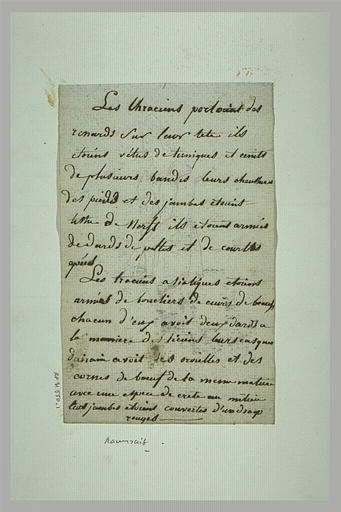 Les thraciens portoient des
renards sur leur tete ils
etoient vétus de tuniques et ceints
de plusieurs bandes leurs chaussures
des pieds et des jambes étoient
de ils étoient armés
de dards de peltes et de courtes
epées
Les traciens asiatiques etoient
armés de boucliers de cuirs de boeufs
chacun d'eux avoit deux dards a
la maniere des liciens leurs casques
d'airain avoit des oreilles et des
cornes de boeuf de la meme matiere
avec une espece de crete au milieu
leurs jambes etoient couvertes d'un drap
rouges